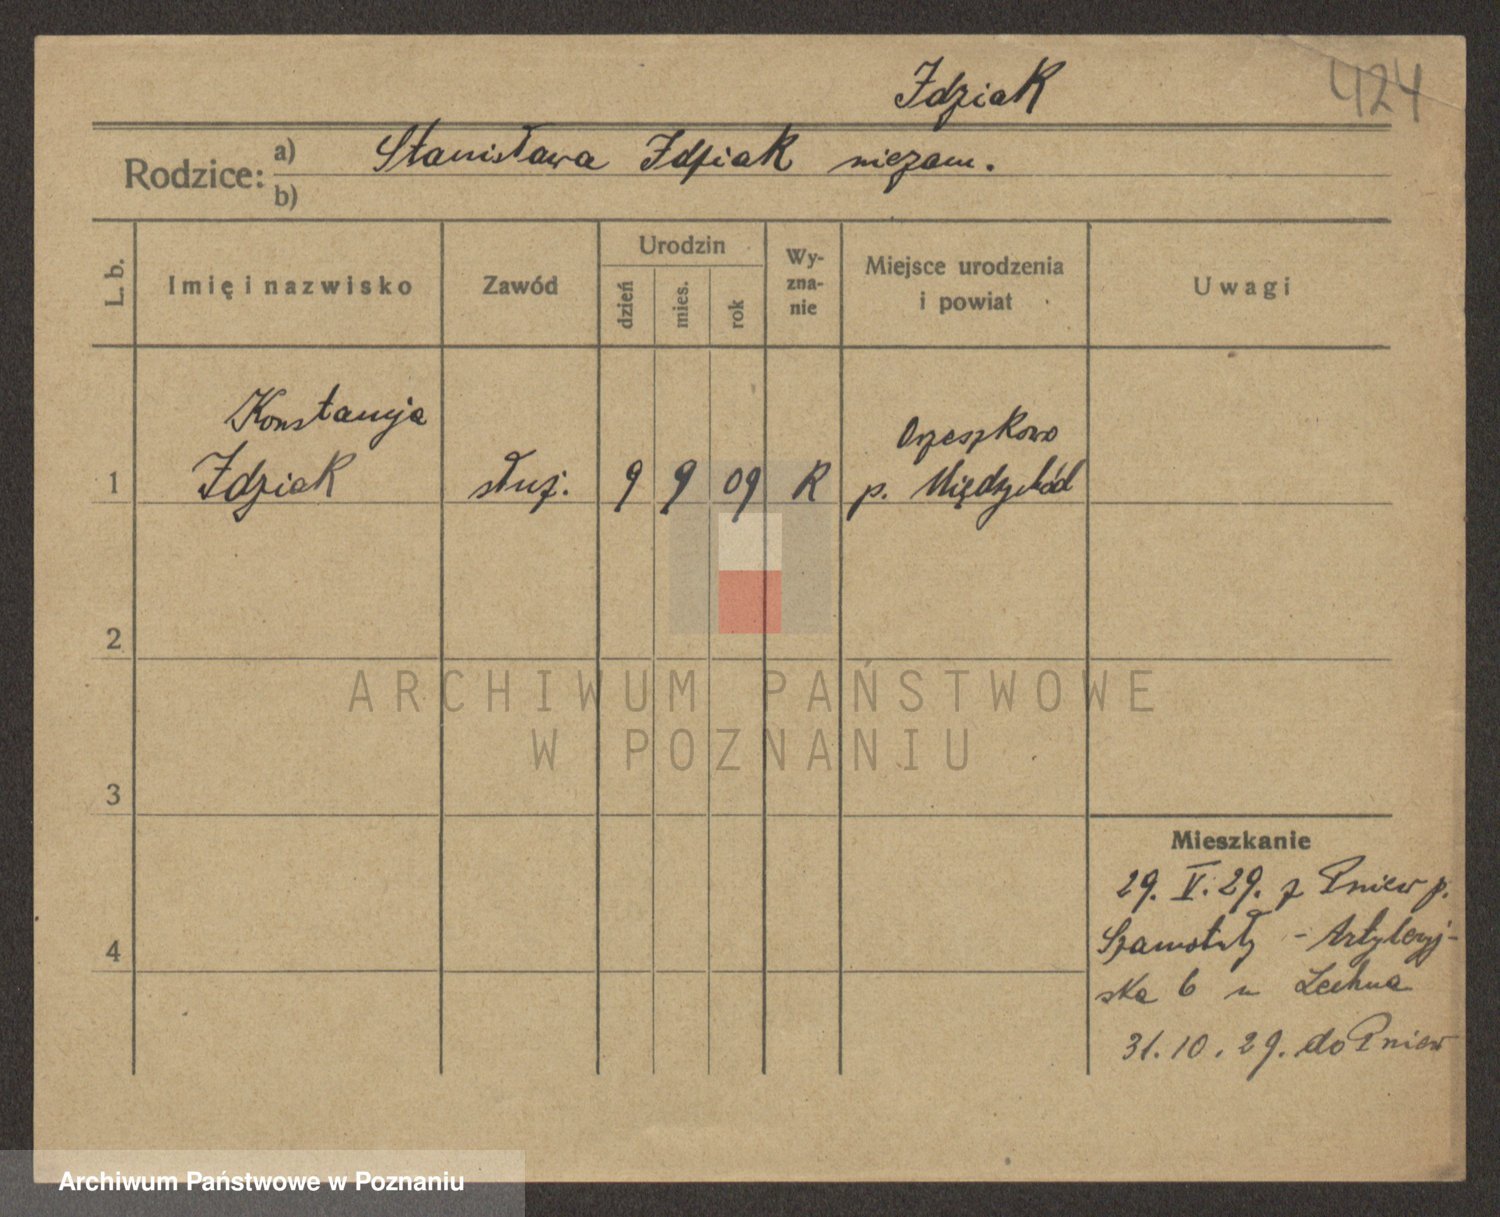 424
Idziak
Rodzice:
a) Stanisława Idziak niezam.
b)
L. b.
Imię i nazwisko
Zawód
Urodzin
dzień
mies.
rok
Wy-
zna-
nie
Miejsce urodzenia
i powiat
Uwagi
Konstancja
Orzeszkowo
1 Idziak służ. 9 9 09 R p. Międzychód
2
3
4
ARCHIWUM PAŃSTWOWE
W POZNANIU
Mieszkanie
29. V. 29. z Pniew p.
Szamotuły - Artyleryj-
ska 6 u Lechna
31. 10. 29. do Pniew
Archiwum Państwowe w Poznaniu